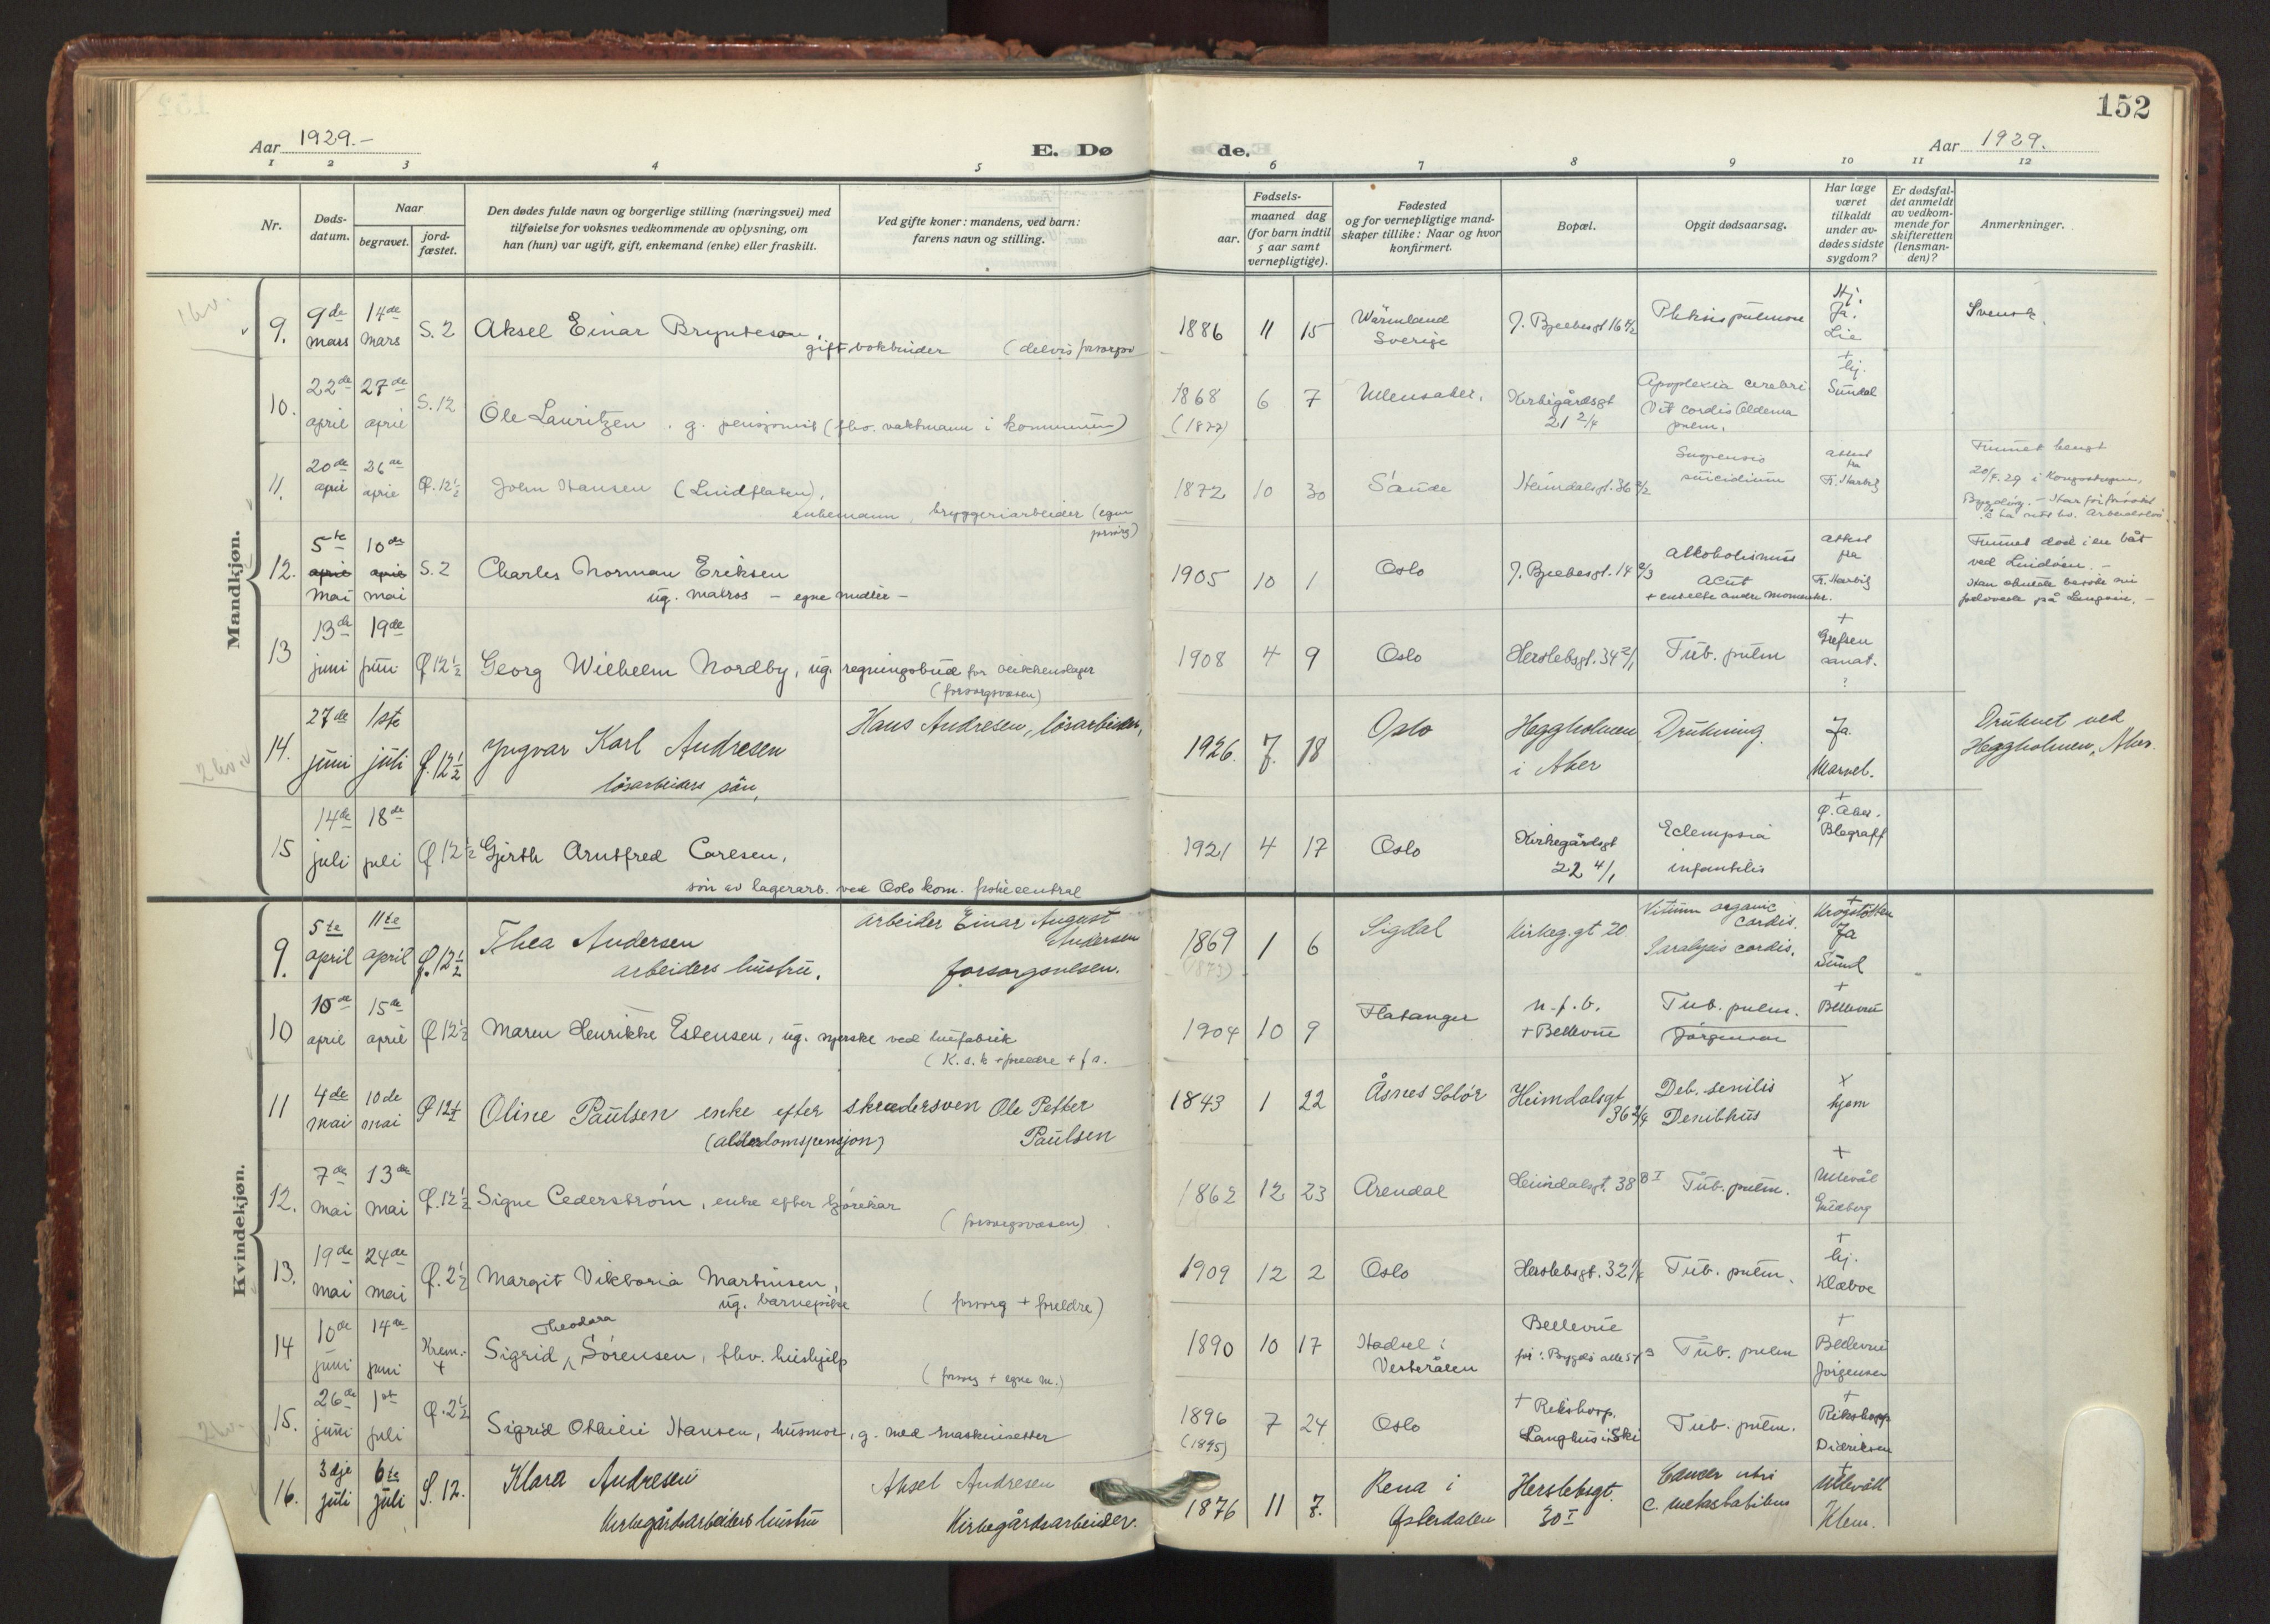 152
Aar 1929.-
E. Dø
de.
Aar 1929.
1 2 3 4 5 6 7 8 9 10 11 12
Nr.
Døds-
datum.
Naar
begravet.
jord-
fæstet.
Den dødes fulde navn og borgerlige stilling (næringsvei) med
tilføielse for voksnes vedkommende av oplysning, om
han (hun) var ugift, gift, enkemand (enke) eller fraskilt.
Ved gifte koner: mandens, ved barn:
farens navn og stilling.
Fødsels-
aar.
maaned dag
(for barn indtil
5 aar samt
vernepligtige).
Fødested
og for vernepligtige mand-
skaper tillike: Naar og hvor
konfirmert.
Bopæl.
Opgit dødsaarsag.
Har læge
været
tilkaldt
under av-
dødes sidste
sygdom?
Er dødsfal-
det anmeldt
av vedkom-
mende for
skifteretten
(lensman-
den)?
Anmerkninger.
Mandkjøn.
9. 9de mars 14de mars S. 2 Aksel Einar Brynteson,
gift bokbinder
1886 11 15 Wärmland Sverige
Hj. Ja. Lie
Svensk.
10. 22de april 27de april S. 12 Ole Lauritzen, g. pensjonist (fhv. vaktmann i kommunen)
1868 (1877) 6 7 Ullensaker. Kirkegårdsgt 21 2/4 Apoplexia cerebri
Vit cordis Oedema pulm.
+ hj. Sundal
11. 20de april 26de april Ø. 12 1/2 John Hansen (Lindflaten),
enkemann, bryggeriarbeider (egen forsørg)
1872 10 30 Sande Heimdalsgt. 36 Suspensio suicidium
attest fra Fr. Harbitz
Funnet hengt
20/4.29 i Kongeskogen,
Bygdöy.
12. 5te april mai 10de april mai S. 2 Charles Norman Eriksen
ug. matros - egne midler -
1905 10 1 Oslo alkoholismus acut
+ enkelte andre momenter.
attest fra Fr. Harbitz
Funnet död i en båt
ved Lindöen. -
13 13de juni 19de juni Ø 12 1/2 Georg Wilhelm Nordby, ug. regningsbud for
(forsorgsvesen)
1908 4 9 Oslo Herslebsgt. 34 2/1 Tub. pulm
+ Grefsen sanat. ?
14. 27de juni 1ste juli Ø. 12 1/2 Yngvar Karl Andresen
lösarbeiders sön,
Hans Andresen, lösarbeider,
1926. 7. 18 Oslo Heggholmen i Aker Drukning. Ja.
Druknet ved
Heggholmen, Aker.
15 14de juli 18de juli Ø 12 1/2 Gjerth Arntfred Carlsen,
sön av lagerarb. ved Oslo kom.
1921 4 17 Oslo Kirkegårdsgt 22 4/1 Eclempsia infantilis
+ Ø. Aker. Blegraff
Kvindekjøn.
9. 5te april 11te april Ø. 12 1/2 Thea Andersen
arbeiders hustru.
arbeider Einar August Andersen
forsorgsvesen.
1869 (1873) 1 6 Sigdal Kirkeg. gt 20 Vitium organic cordis.
Paralysis cordis.
+ Krogstötten Ja Sund
10 10de april 15de april Ø 12 1/2 Maren Henrikke Estensen, ug. syerske ved huefabrik
1904 10 9 Flatanger n.f.b. + Bellevue Tub. pulm.
Jörgensen
+ Bellevue
11 4de mai 10de mai Ø 12 1/2 Oline Paulsen enke efter skredersven Ole Petter Paulsen
(alderdomspensjon)
1843 1 22 Åsnes Solör Heimdalsgt 36 2/4 Deb. senilis
x hjem
12. 7de mai 13de mai Ø. 12 1/2 Signe Cederström, enke efter kjörekar
(forsorgsvesen)
1862 12 23 Arendal Heimdalsgt. 38 Tub. pulm.
+ Ullevål
13. 19de mai 24de mai Ø. 2 1/2 Margit Viktoria Martinsen,
ug. barnepike
(forsorg + foreldre)
1909 12 2 Oslo Herslebsgt. 32 Tub. pulm.
+ hj. Klæboe
14 10de juni 14de juni Krem. + Sigrid Theodora Sörensen, fhv. hushjelp
(forsorg + egne m.)
1890 10 17 Hadsel i Vesterålen Bellevue Tub. pulm
+ Bellevue Jörgensen
15. 26de juni 1st juli Ø. 2 1/2 Sigrid Othilie Hansen, husmor, g. med maskinsetter
1896 (1895) 7 24 Oslo + Rikshosp. Langhus i Ski Tub. pulm.
+ Rikshosp Didriksen
16. 3dje juli 6te juli S. 12. Klara Andresen
Kirkegårdsarbeiders hustru
Aksel Andresen
Kirkegårdsarbeider.
1876 11 7. Rena i Østerdalen Herslebsgt. 30 I Cancer uteri
c. metastatibus
+ Ullevåll Klem.